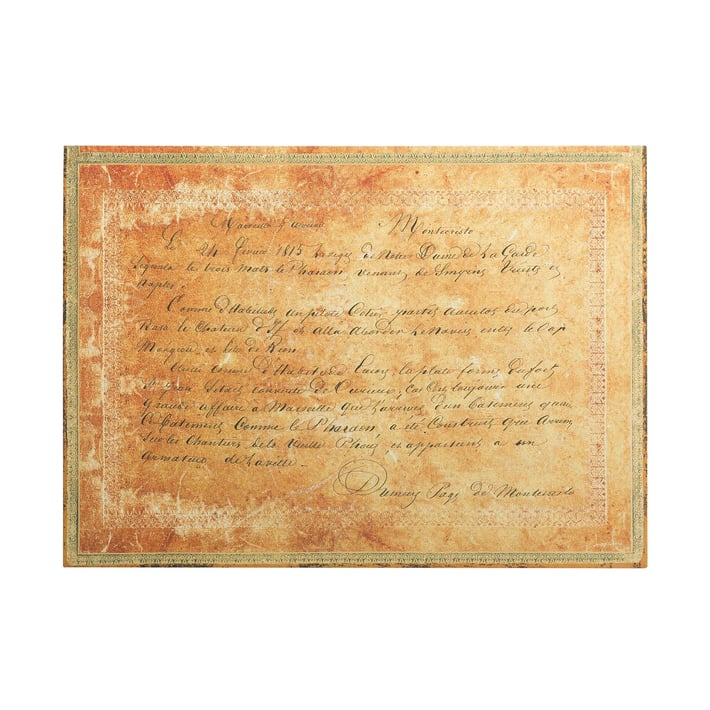 Montecristo
Le 24 février 1815 la vigie de Notre Dame de La Garde
Signala le trois mats le Pharaon venant de Smyrne Trieste et
Naples.
Comme d'Habitude un pilote Cotier partit aussitot du port
Rasa le Chateau d'If et alla Aborder Le Navire entre le Cap
Morgiou et l'ile de Rion
Aussi comme d'Habitude encore, la plate forme du fort
S'etait couverte de Curieux, Car C'est toujours une
Grande affaire a Marseille que l'arrivée d'un Batiment quand
Ce Batiment Comme le Pharaon a été Construit
Sur les Chantiers de la Vieille Phocée et appartient a un
Armateur de la ville.
Dumas Page de Montecristo